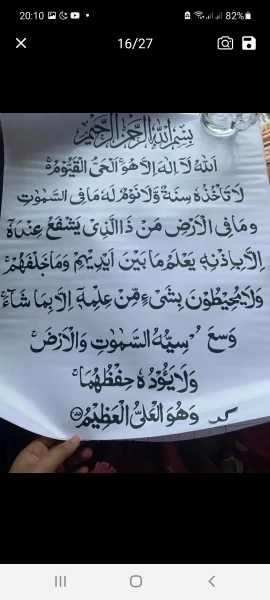 20:10 82%
16/27
بسم الله الرحمن الرحيم
اَللهُ لَآ اِلٰهَ اِلَّا هُوَ ۚ اَلْحَىُّ الْقَيُّوْمُ ۚ
لَا تَاْخُذُهٗ سِنَةٌ وَّلَا نَوْمٌ ؕ لَهٗ مَا فِى السَّمٰوٰتِ
وَمَا فِى الْاَرْضِ ؕ مَنْ ذَا الَّذِىْ يَشْفَعُ عِنْدَهٗٓ
اِلَّا بِاِذْنِهٖ ؕ يَعْلَمُ مَا بَيْنَ اَيْدِيْهِمْ وَمَا خَلْفَهُمْ ۚ
وَلَا يُحِيْطُوْنَ بِشَىْءٍ مِّنْ عِلْمِهٖٓ اِلَّا بِمَا شَآءَ ۚ
وَسِعَ سِيُّهُ السَّمٰوٰتِ وَالْاَرْضَ ۚ
وَلَا يَئُوْدُهٗ حِفْظُهُمَا ۚ
كر وَهُوَ الْعَلِىُّ الْعَظِيْمُ ﴿۲۵۵﴾